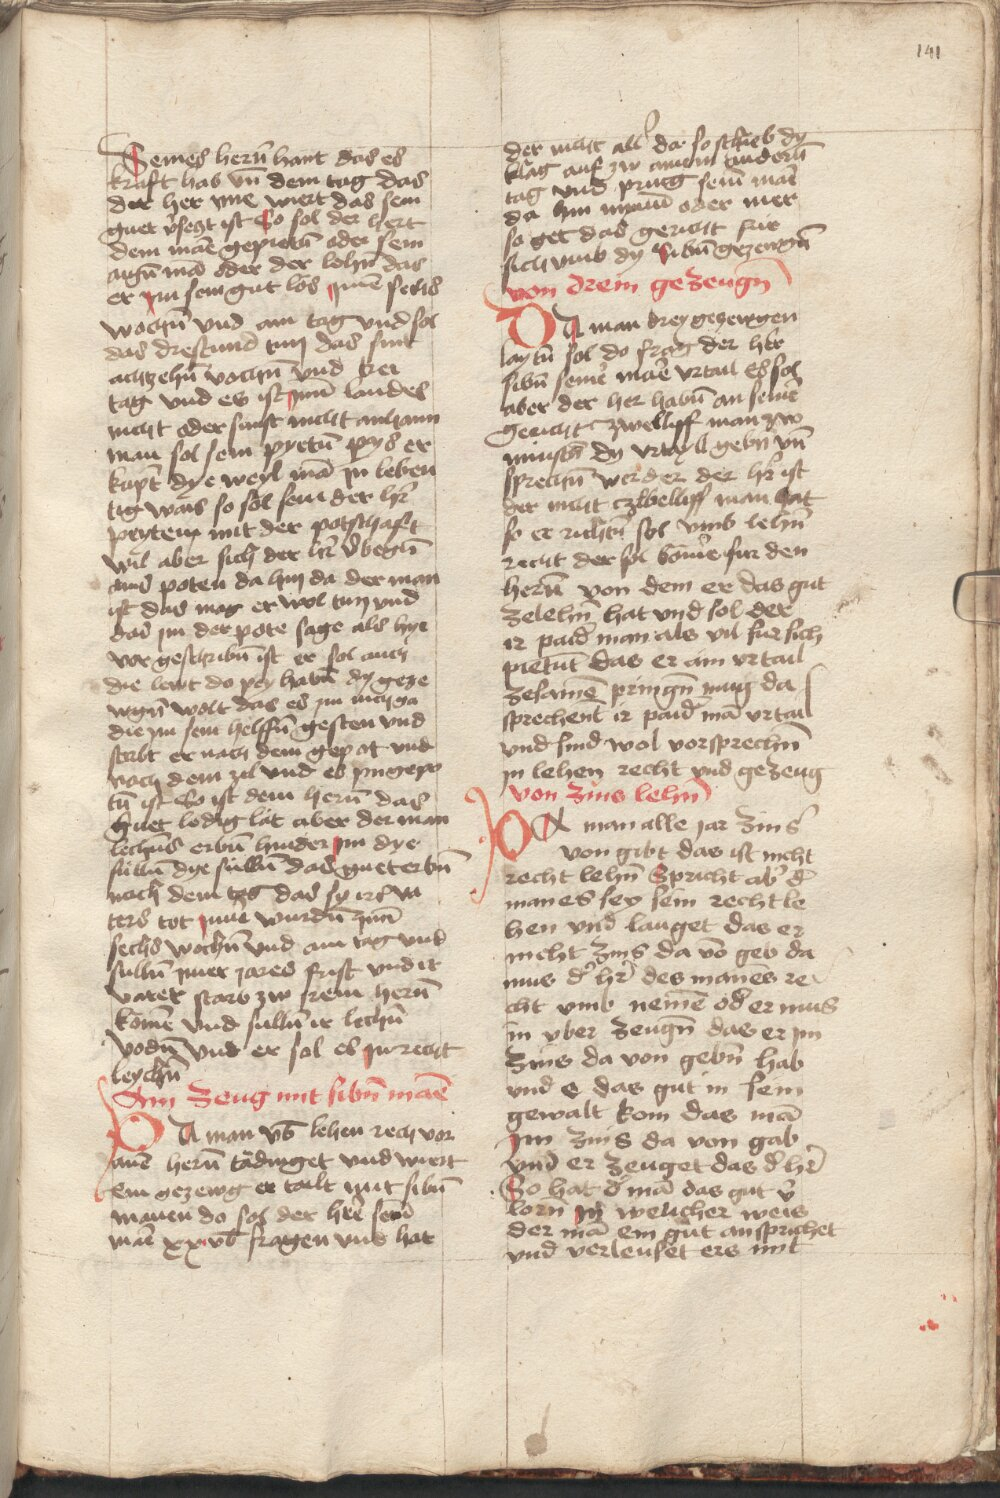 141
Seines herñ hant das es
kraft hab vñ dem tag das
der her yne wert das sein
guet v̓sezt ist So sol der hert
dem mañe gepietñ oder sein
aigñ mā oder der lehñ das
er im sein gut los inñe sechs
wochñ vnd am tag vnd sol
das drestund tun das sint
achzehñ vochñ vnd drei
tag vnd es ist im landes
nicht oder sunst nicht anhaim
man sol sein pyetñ pys er
kupt dye weyl mā in leben
tig wais so sol sein der hr̄
peytem mit der potschaft
wil aber sich der hr̄
ains poten da hin da der man
ist das mag er wol tun vnd
das im der pote sage als hye
vor geschribñ ist er sol auch
die lewt do pey habñ dy geze
wgñ wolt das es im
die im sein helffñ gesten vnd
sterbt er nach dem gepot vnd
noch dem zil vnd es vngepo
tñ ist So ist dem herñ das
guet ledig lat aber der man
lechns erbñ hinder im dye
sullñ dye sullñ das guet erbñ
nach dem tag das sy irs va
ters tot inne wurdñ zin
sechs wochñ vnd am tag vnd
sullñ iner jares frist vnd ir
vater starb zw irem herñ
komē vnd sullñ ir lechñ
vodñ vnd er sol es in recht
leychñ
Ain zeug mit sibñ mañe
DA man vb lehen rech vor
aine herñ tādinget vnd wiert
ein gezewg er tailt mit sibñ
manen do sol der hr̄e sein
man xx vb fragen vnd hat
der nicht all da so schieb dy
klag auf zw ainem anderñ
tag vnd pring sein mañ
da hin mynn oder mer
so get das gericht fur
sich vmb dy sibñ gezewgñ
von drein gezeugñ
DA man drey gezewgen
laytñ sol do frag der her
sibñ seiner mañe vrtail es sol
aber der her habñ an seinē
gericht zwelliff man zw
minstñ dy vrtayl gebñ vñ
sprechñ werder der hr̄ ist
der nicht czbelliff man hat
so er richtñ sol vmb lehñ
recht der sol kömē fur den
herñ von dem er das gut
zelehñ hat vnd sol der
ir paid̓ man als vil fur sich
pietñt das er ain vrtail
zesamē pringñ mug da
sprechent ir paid̓ mā vrtail
vnd sind wol vorsprechñ
in lehen recht vnd gezeug
von zins lehñ
DA man alle jar zins
von gibt das ist nicht
recht lehñ Spricht ab̓ d̓
man es sey sein recht le
hen vnd lauget das er
nicht zins da vō geb da
mus d̓ hr̄ des manes re
cht vmb nemē od̓ er mus
in vber zeugñ das er im
zins da von gebñ hab
vnd e das gut in sein
gewalt kom das mā
im zins da von gab
vnd er zeuget das d̓ hr̄
So hat d̓ mā das gut v̓
lorñ in welicher weis
der mā ein gut ansprichet
vnd verleuset ers mit